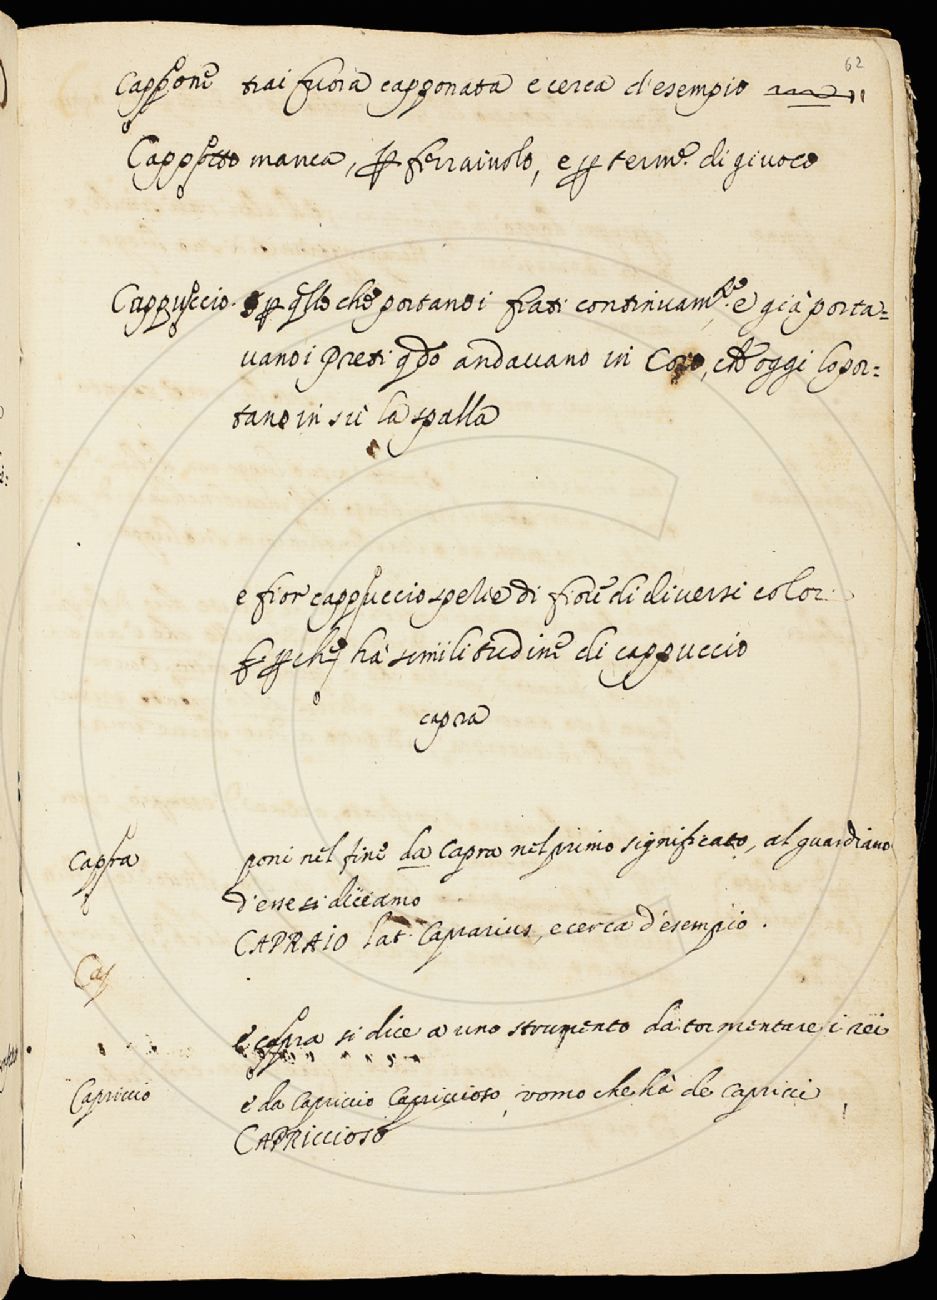 62
Cappone trai fuora capponata e cerca d'esempio
Cappotto manca, ꝑ ferraiuolo, e ꝑ term.e di giuoco
Cappuccio. ꝑ qllo che portano i frati continuam.te e già porta=
vano i Preti qdo andavano in Coro, che oggi lo por=
tano in sù la spalla
e fior cappuccio spetie di fiore di diversi color
ꝑche hà similitudine di cappuccio
capra
Capra poni nel fine da Capra nel primo significato, al guardiano
d'esse si diciamo
CAPRAIO lat. Caprarius, e cerca d'esempio.
Cap
e capra si dice a uno strumento da tormentare i rei
Capriccio e da Capriccio Capriccioso, vomo che hà de capricci
CAPRICCIOSO